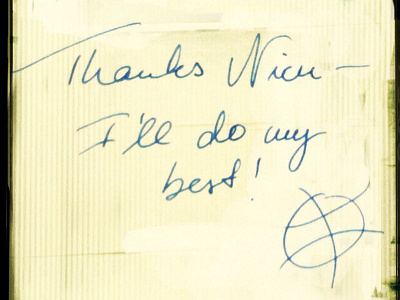 Thanks Nicu –
I'll do my
best!